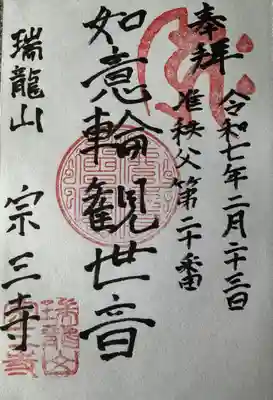 奉拝
令和七年二月二十三日
准秩父第二十番
如意輪観世音
瑞龍山
宗三寺